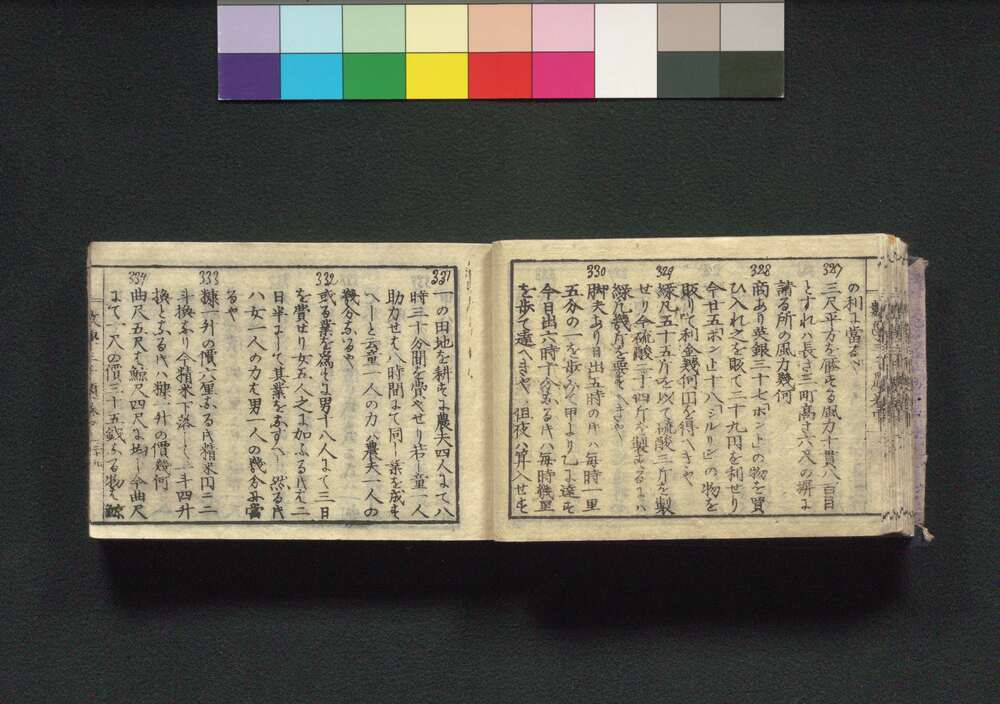 の利に當るや
327
三尺平方を壓する風力十貫八百目
とすれハ長さ三町高さ六尺の塀に
請る所の風力幾何
328
商あり英銀三十七ポンドの物を買
ひ入れ之を賑て二十九円を利せり
今廿五ポンド十八シルリングの物を
賑りて利金幾何円を得へきや
329
緑凡五十五斤を以て硫酸三斤を製
せり今硫酸二十四斤を製するにハ
緑凡幾斤を要すへきや
330
脚夫あり日出五時の時ハ毎時一里
五分の一を歩みて甲より乙に達す
今日出六時十分なる時ハ毎時幾里
を歩て達へきや但夜ハ算入せす
331
の田地を耕すに農夫四人にて八
時三十分間を費やせり若し童一人
助力せは八時間にて同し業を成す
へしと云童一人の力ハ農夫一人の
幾分なるや
332
或る業を為すに男十八人にて三日
を費せり女五人之に加ふる時は二
日半にして其業をなすへし然る時
ハ女一人の力は男一人の幾分に當
るや
333
糠一升の價六厘なる時精米円に二
斗換なり今精米下落して二斗四升
換となる時ハ糠一升の價幾何
334
曲尺五尺は鯨尺四尺に均し今曲尺
にて一尺の價三十五銭なる物は鯨